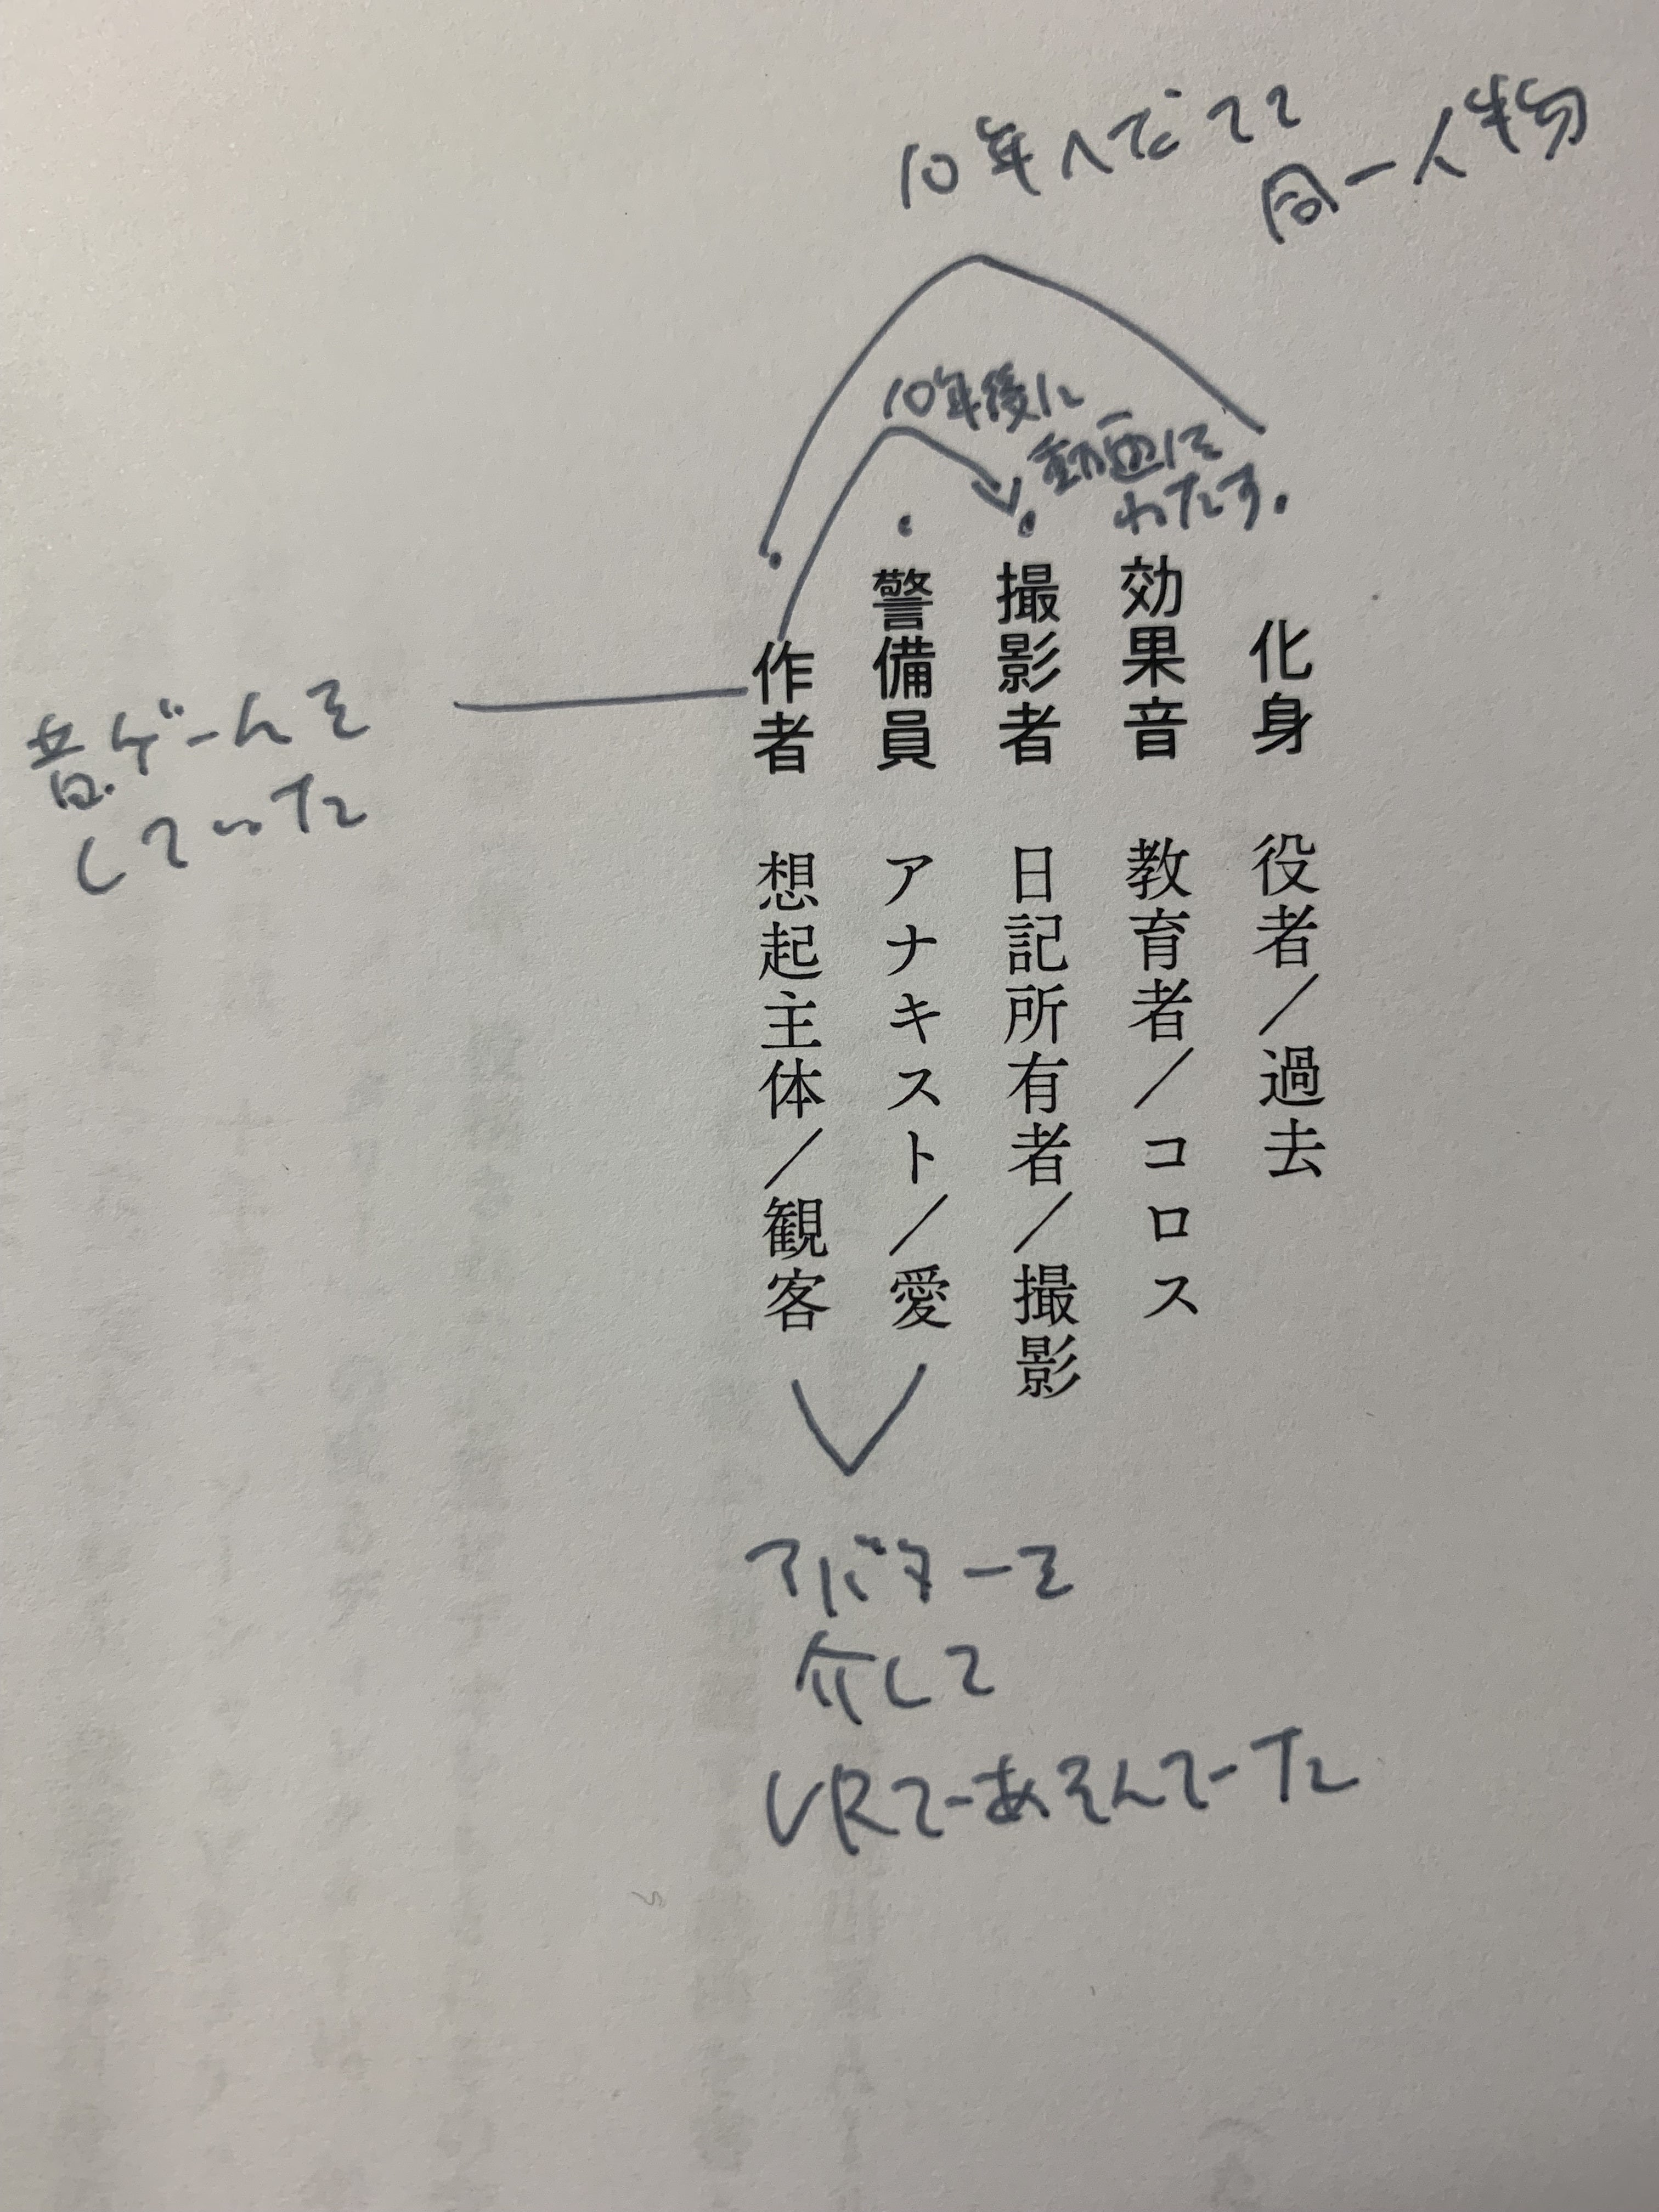 10年へだてて
同一人物
10年後に
動画を
わたす.
化身 役者／過去
効果音 教育者／コロス
撮影者 日記所有者／撮影
警備員 アナキスト／愛
作者 想起主体／観客
昔.ゲームを
していた
アバターを
介して
VRであそんでーた